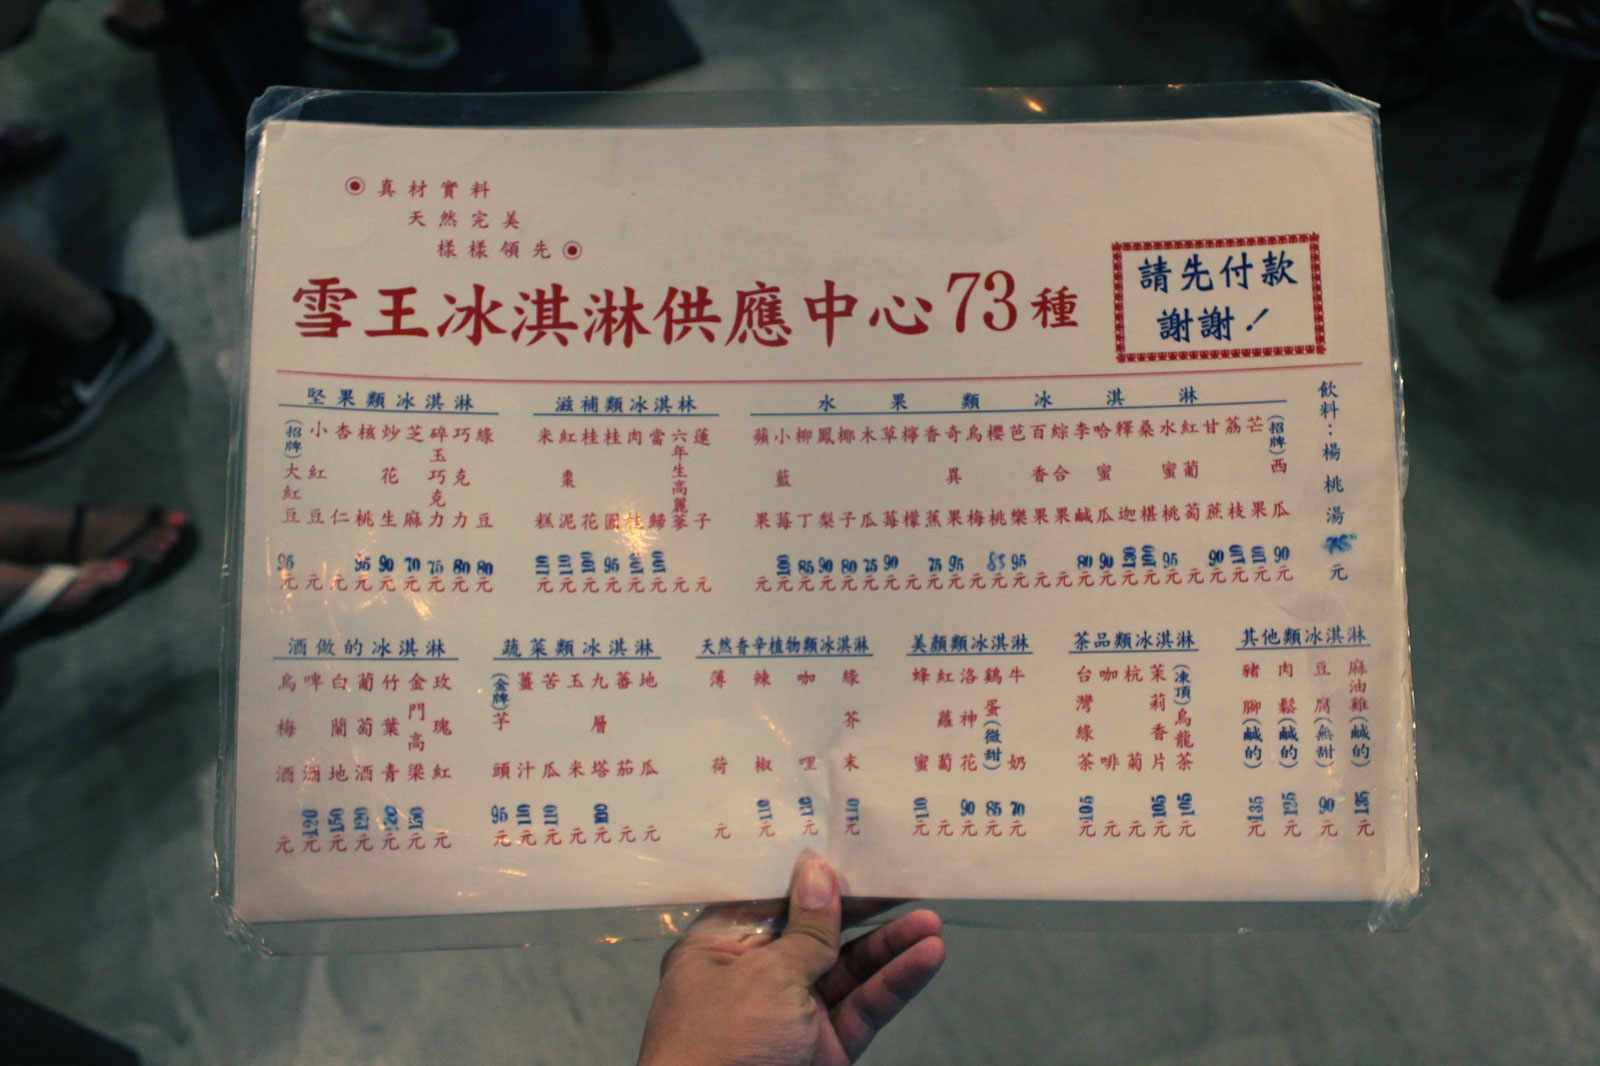 ◉真材實料
天然完美
樣樣領先◉
雪王冰淇淋供應中心73種
請先付款
謝謝！
堅果類冰淇淋
(招牌)大紅豆 95元
小紅豆 元
杏仁 元
核桃 95元
炒花生 90元
芝麻 70元
碎玉巧克力 75元
巧克力 80元
綠豆 80元
滋補類冰淇淋
米糕 110元
紅棗泥 110元
桂花 100元
桂圓 95元
肉桂 101元
當歸 100元
六年生高麗蔘 元
蓮子 元
水果類冰淇淋
蘋果 元
小藍莓 100元
柳丁 85元
鳳梨 90元
椰子 80元
木瓜 75元
草莓 90元
檸檬 元
香蕉 75元
奇異果 95元
烏梅 元
櫻桃 85元
芭樂 95元
百香果 元
綜合果 元
李鹹 80元
哈蜜瓜 90元
釋迦 130元
桑椹 100元
水蜜桃 95元
紅葡萄 元
甘蔗 90元
荔枝 110元
芒果 101元
(招牌)西瓜 90元
飲料：楊桃湯 75元
酒做的冰淇淋
烏梅酒 元
啤酒 120元
白蘭地 150元
葡萄酒 120元
竹葉青 120元
金門高粱 150元
玫瑰紅 元
蔬菜類冰淇淋
(金牌)芋頭 95元
薑汁 110元
苦瓜 110元
玉米 元
九層塔 100元
蕃茄 元
地瓜 元
天然香辛植物類冰淇淋
薄荷 元
辣椒 110元
咖哩 110元
綠芥末 110元
美顏類冰淇淋
蜂蜜 110元
紅蘿蔔 元
洛神花 90元
鷄蛋(微甜) 85元
牛奶 70元
茶品類冰淇淋
台灣綠茶 105元
咖啡 元
杭菊 元
茉莉香片 105元
(凍頂)烏龍茶 105元
其他類冰淇淋
豬腳(鹹的) 135元
肉鬆(鹹的) 125元
豆腐(無甜) 90元
麻油雞(鹹的) 135元